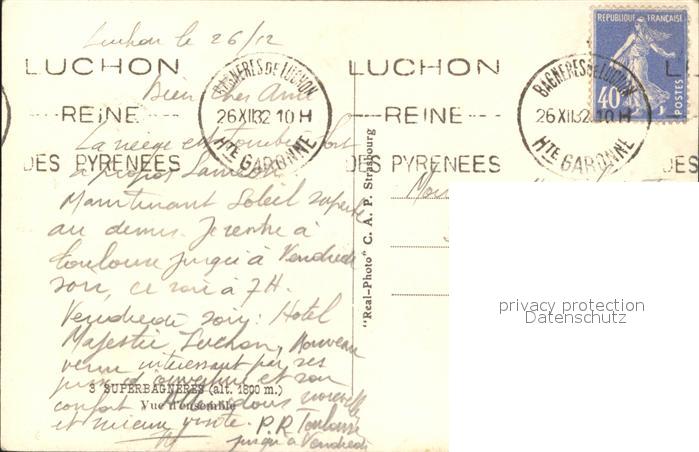 Luchon le 26/12
LUCHON
REINE
DES PYRENEES
BAGNERES DE LUCHON
26 XII 32 10 H
HTE GARONNE
LUCHON
REINE
DES PYRENEES
BAGNERES DE LUCHON
26 XII 32 10 H
HTE GARONNE
L
DES
REPUBLIQUE FRANÇAISE
40 c
POSTES
Bien cher Ami
La neige est tombée fort
à propos Samedi
Maintenant Soleil superbe
au demis. Je rentre à
Toulouse jusqu'à Vendredi
soir, ce soir à 7H.
Vendredi soir: Hotel
Majestic Luchon, Nouveau
venu intéressant par ses
prix d'ouverture et son
confort
et mieux
P.R. Toulouse
jusqu'à Vendredi
3 SUPERBAGNÈRES (alt. 1800 m.)
Vue d'ensemble
"Real-Photo" C. A. P. Strasbourg
privacy protection
Datenschutz